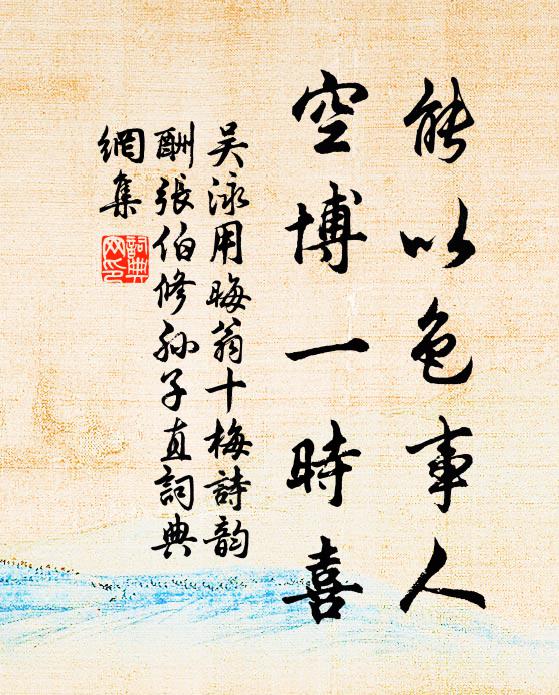 能以色事人
空博一時喜
吴泳用晦翁十梅詩韵
酬張伯修孙子直詞典
網集
詞典
网印